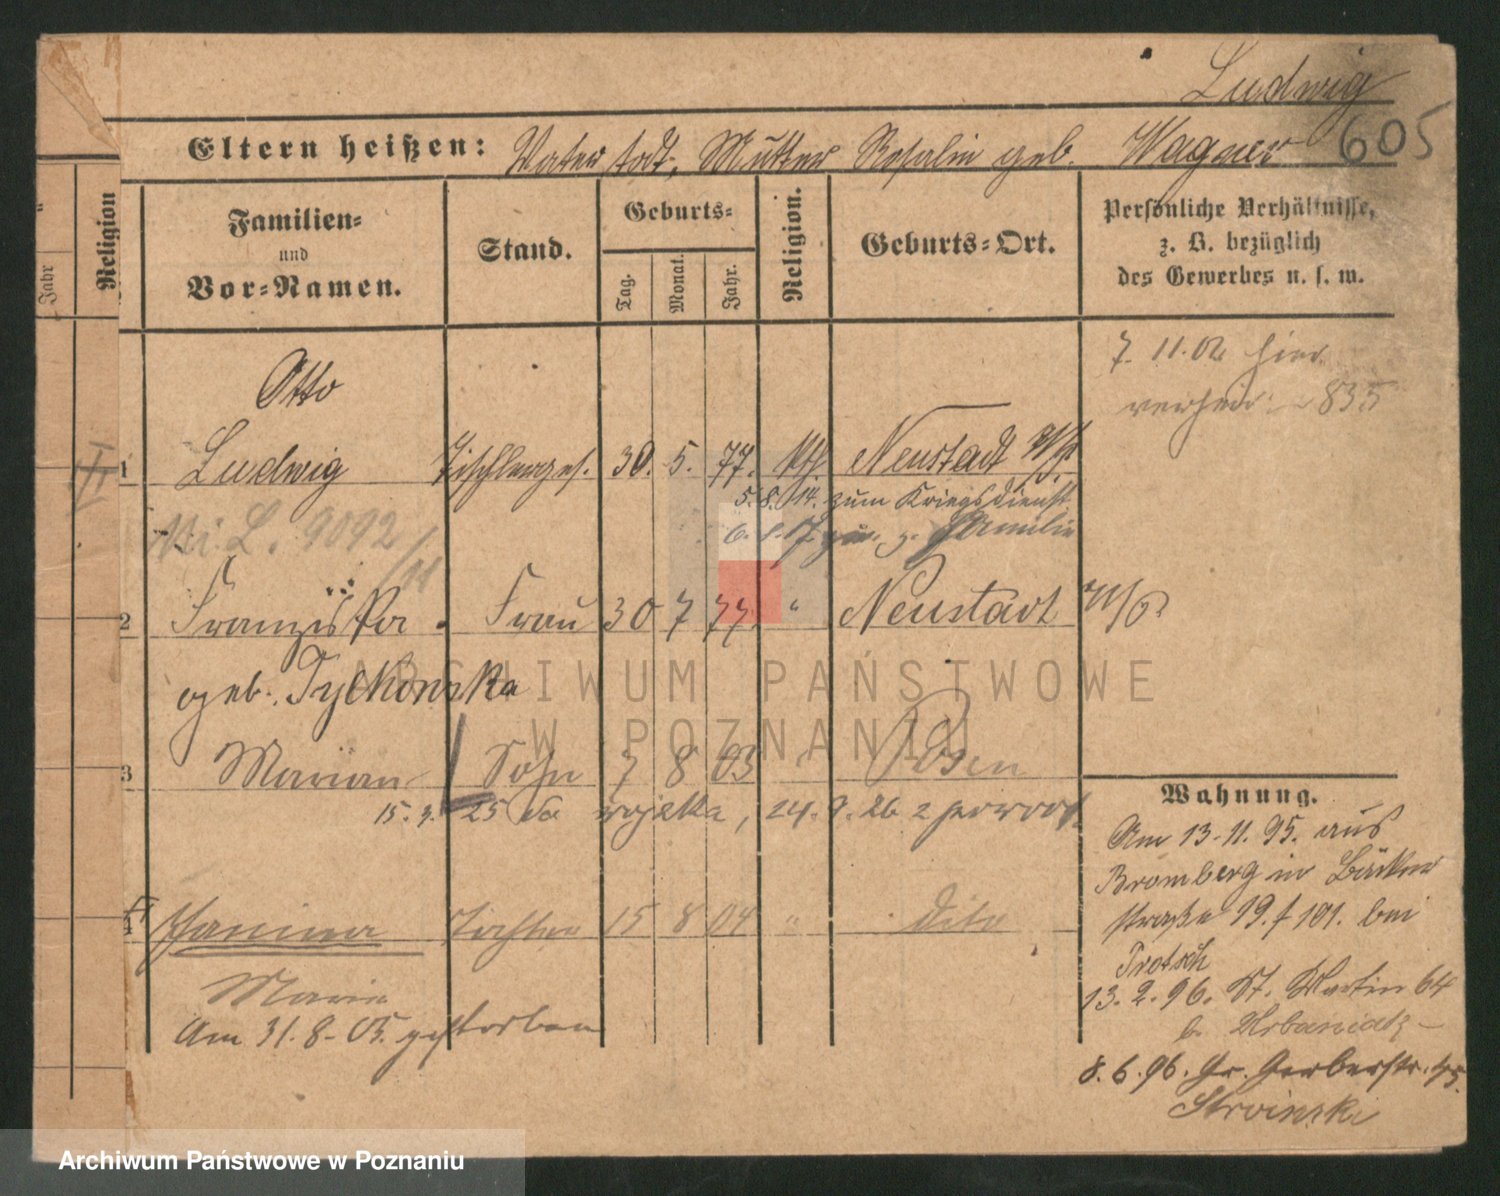 Ludwig
605
Eltern heißen: Vater todt, Mutter Rosalin geb. Wagner
Jahr
Religion
Familien-
und
Vor-Namen.
Stand.
Geburts-
Tag.
Monat.
Jahr.
Religion.
Geburts-Ort.
Persönliche Verhältnisse,
z. B. bezüglich
des Gewerbes u. s. w.
7. 11. 02 hier
verheir. 835
Otto
1 Ludwig Tischlerges. 30. 5. 77. kth Neustadt W/P
5. 8. 14. zum Kriegsdienst
z. Familie
L. 9092
/11
2 Franziska Frau 30 7 77. " Neustadt W/P
geb. Tylkowska
3 Marian Sohn 7 8 03 " Posen
15. 3. 25 do wojska, 24. 9. 26 z powrot.
4 Janina Tochter 15 8 04 " dito
Maria
Am 31. 8. 05. gestorben
Wohnung.
Am 13. 11. 95. aus
Bromberg in Bäcker
straße 19. f 101. bei
Trotsch
13. 2. 96. St. Martin 64
b. Urbaniak
8. 6. 96. Gr. Gerberstr. 45.
Stroinski
ARCHIWUM PAŃSTWOWE
W POZNANIU
Archiwum Państwowe w Poznaniu